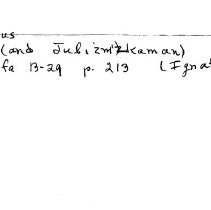 us
(and Jubizmizkaman)
fa B-29 p. 213 (Igna